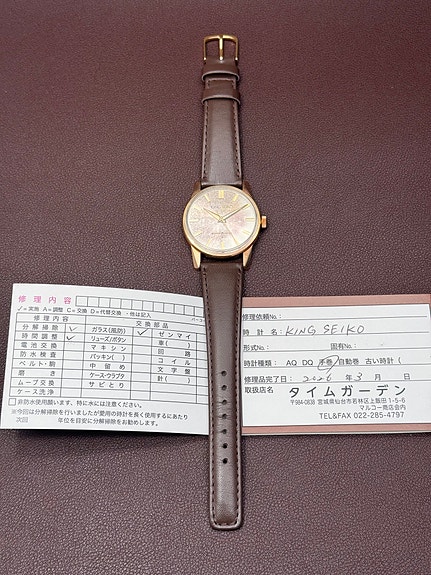 修理内容
✓=実施 A=調整 C=交換 D=代替交換 ・他は記入
修理内容
交換部品
分解掃除 ✓ ガラス(風防) ✓ ゼンマイ
時間調整 ✓ リューズ/ボタン 車( )
電池交換 マキシン 回路
防水検査 パッキン( ) コイル
ベルト・駒 中留め 文字盤
磨き ケース・ウラブタ 針( )
ムーブ交換 サビとり
ケース洗浄
□非防水使用願います、特に水には注意ください。
※今回は分解掃除を行いましたが愛用の時計を長く使用するにあたり
次回 年位を目安に分解掃除をお勧めします。
修理依頼No.:
時計名: KING SEIKO
形式No.: 固有No.:
時計種類: AQ DQ 手巻 自動巻 古い時計(
修理品完了日: 2026年3月 日
取扱店名 タイムガーデン
〒984-0838 宮城県仙台市若林区上飯田1-5-6
マルコー商店会内
TEL&FAX 022-285-4797